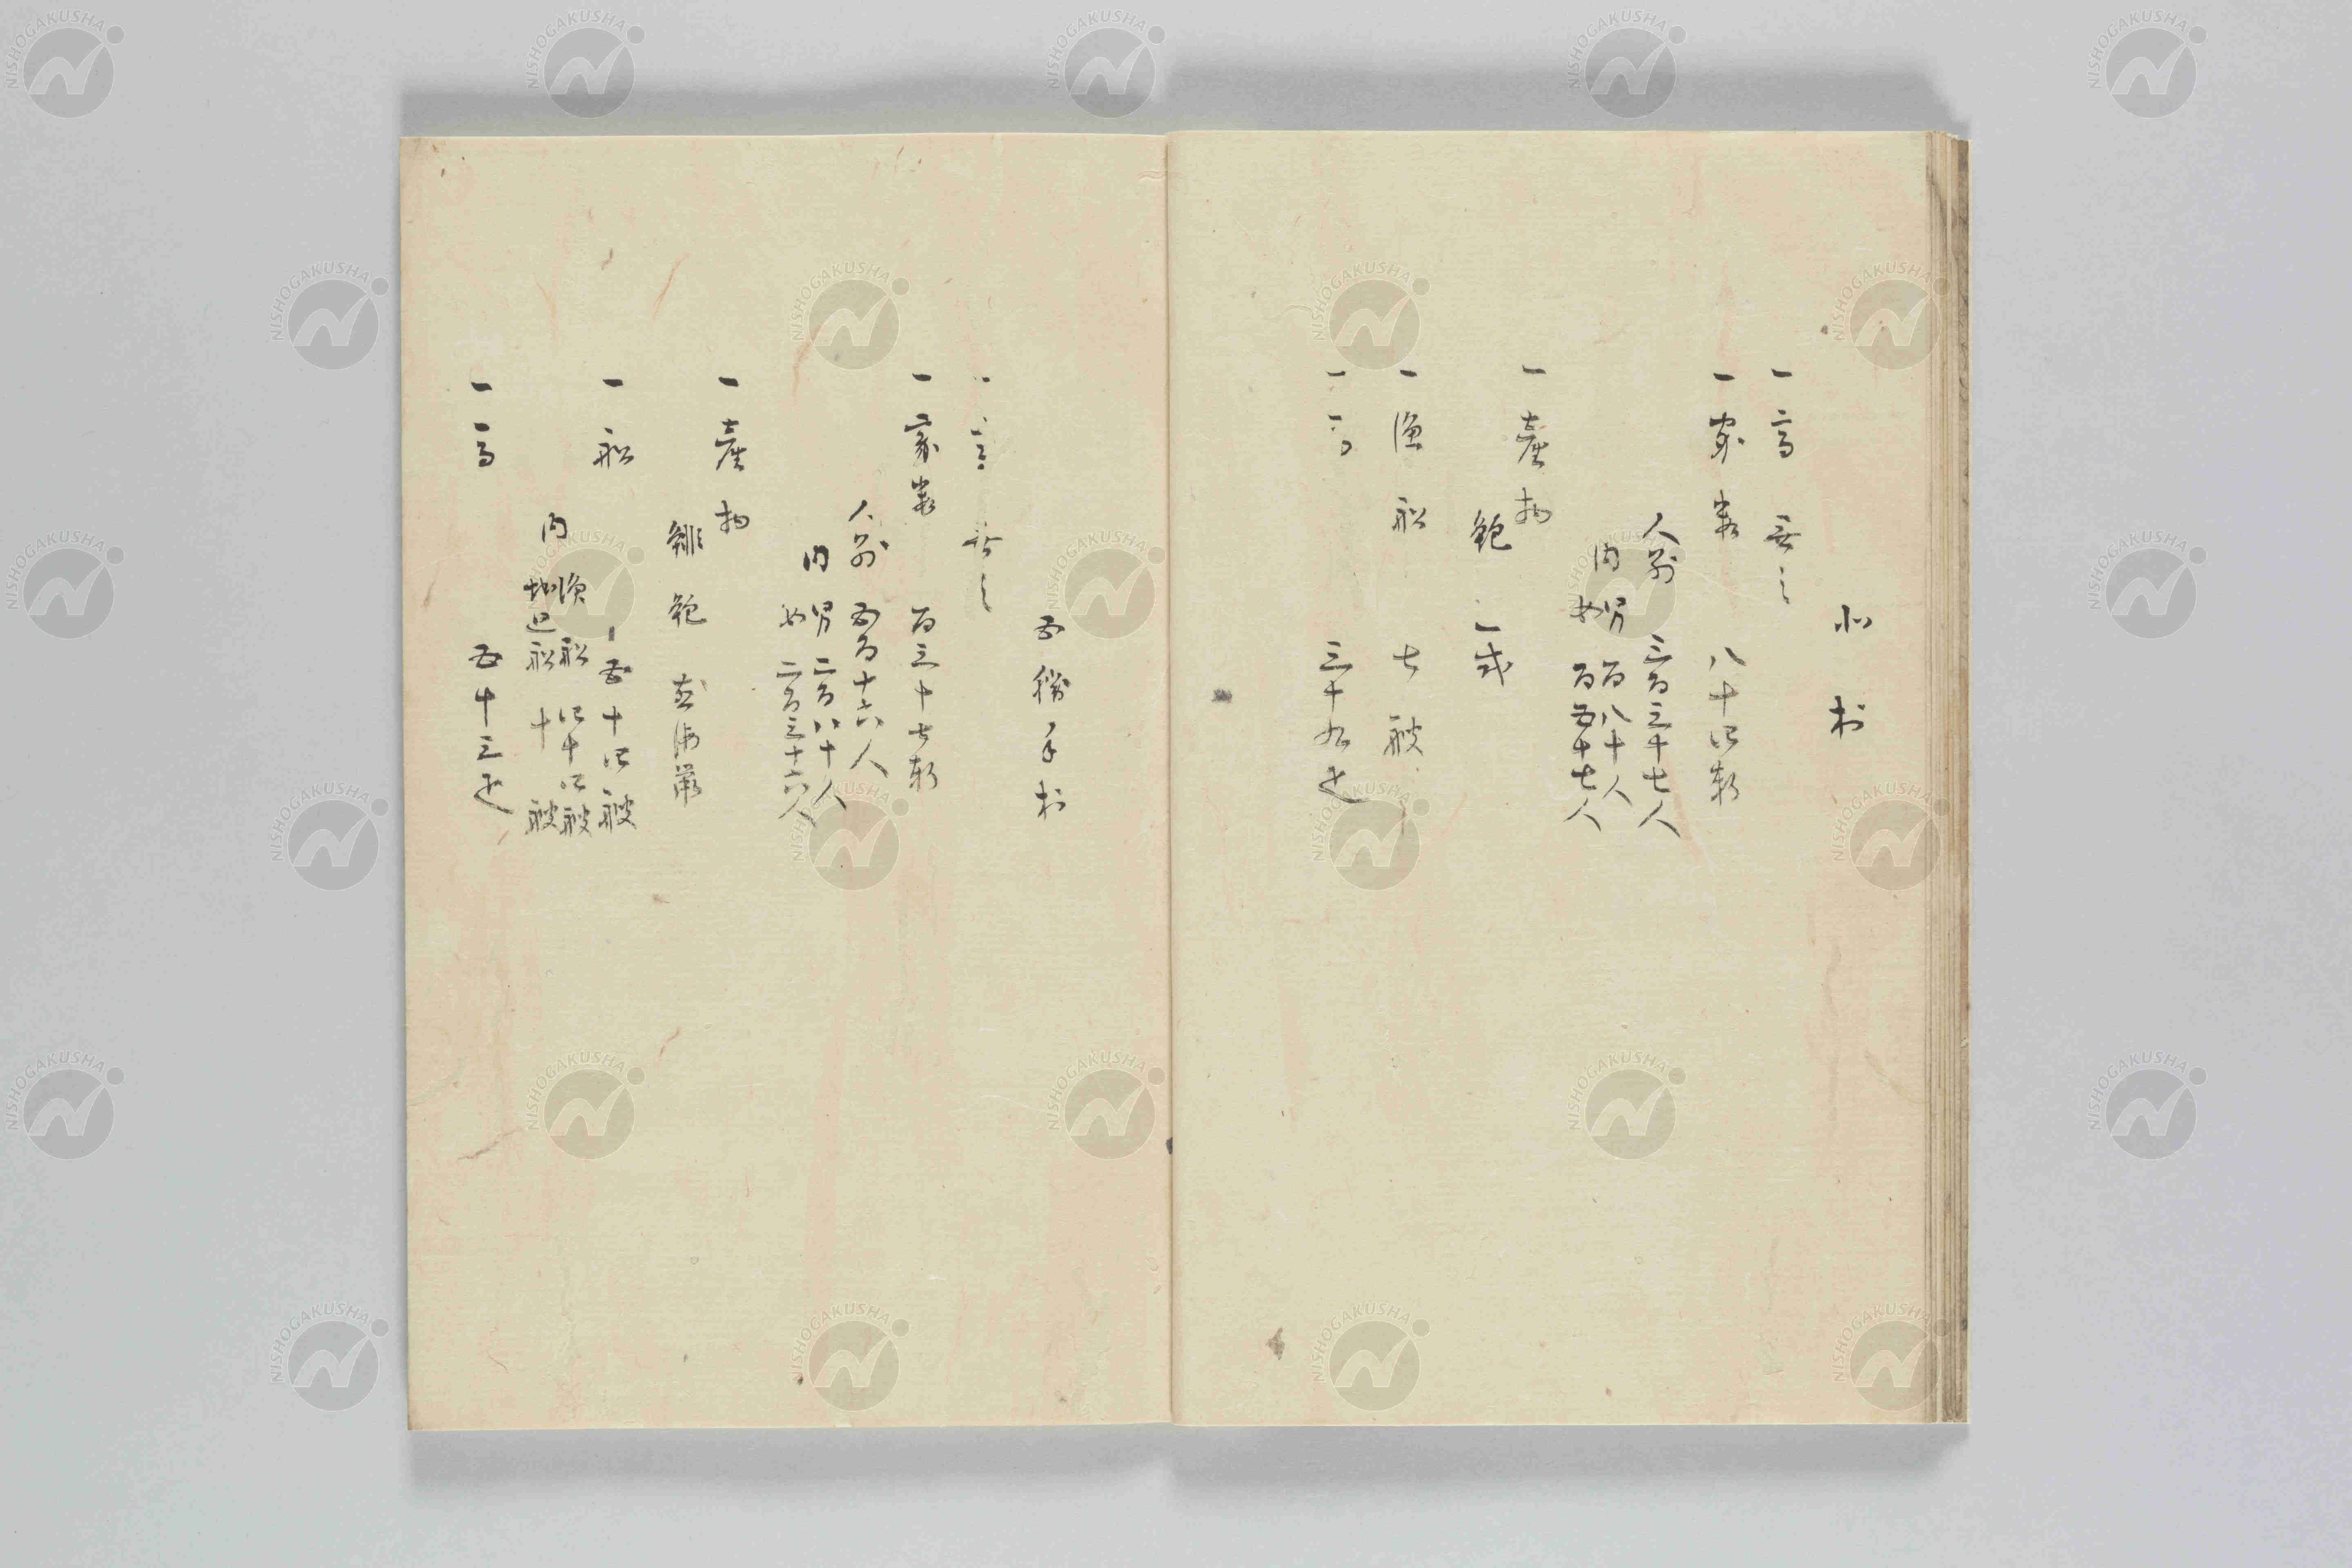 北村
一高 無之
一家数 八十四軒
人別 三百三十七人
内 男 百八十人
女 百五十七人
一産物
鮑 一式
一漁船 七艘
一馬 三十九疋
五勝手村
一高 無之
一家数 百三十七軒
人別 五百十六人
内 男 二百八十人
女 二百三十六人
一産物
鯡 鮑 昆布
一船 五十四艘
内 漁船 四十四艘
地廻船 十艘
一馬 五十三疋
NISHOGAKUSHA